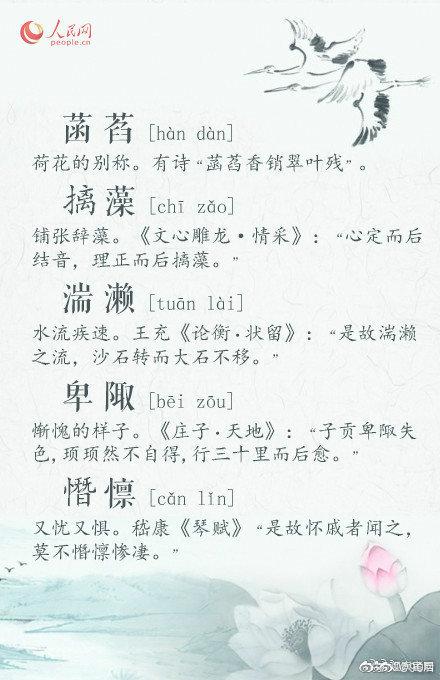 人民网
people.cn
菡萏 [hàn dàn]
荷花的别称。有诗“菡萏香销翠叶残”。
摛藻 [chī zǎo]
铺张辞藻。《文心雕龙·情采》：“心定而后
结音，理正而后摛藻。”
湍濑 [tuān lài]
水流疾速。王充《论衡·状留》：“是故湍濑
之流，沙石转而大石不移。”
卑陬 [bēi zōu]
惭愧的样子。《庄子·天地》：“子贡卑陬失
色,顼顼然不自得,行三十里而后愈。”
憯懔 [cǎn lǐn]
又忧又惧。嵇康《琴赋》“是故怀戚者闻之，
莫不憯懔惨凄。”